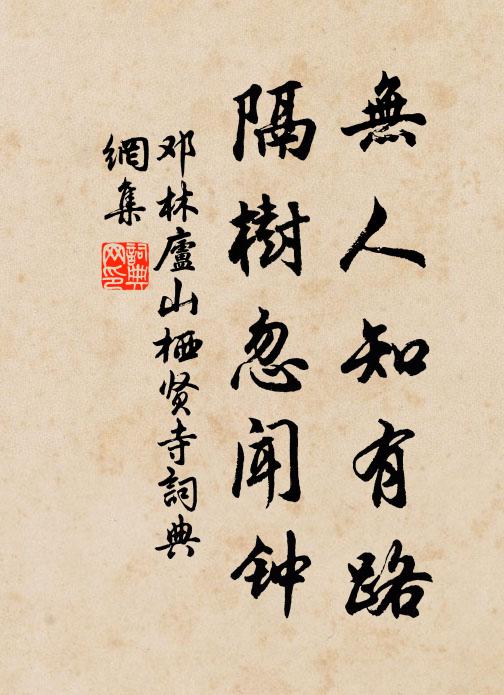 無人知有路
隔樹忽闻钟
邓林廬山栖贤寺詞典
網集
詞典网印